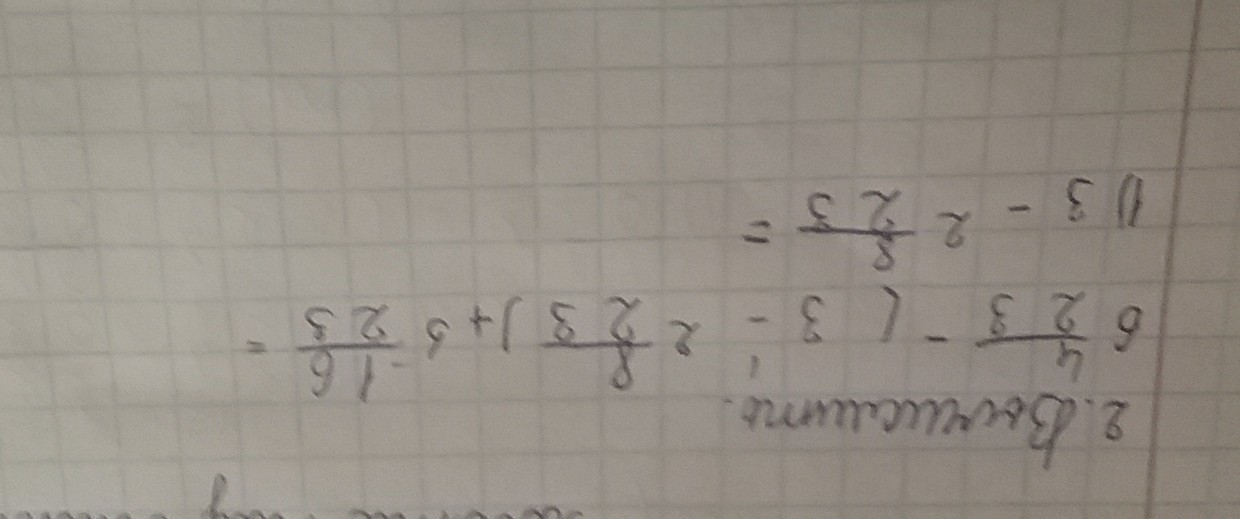 2. Вычислить.
6 4/23 - (3 - 2 8/23) + 5 16/23 =
1) 3 - 2 8/23 =